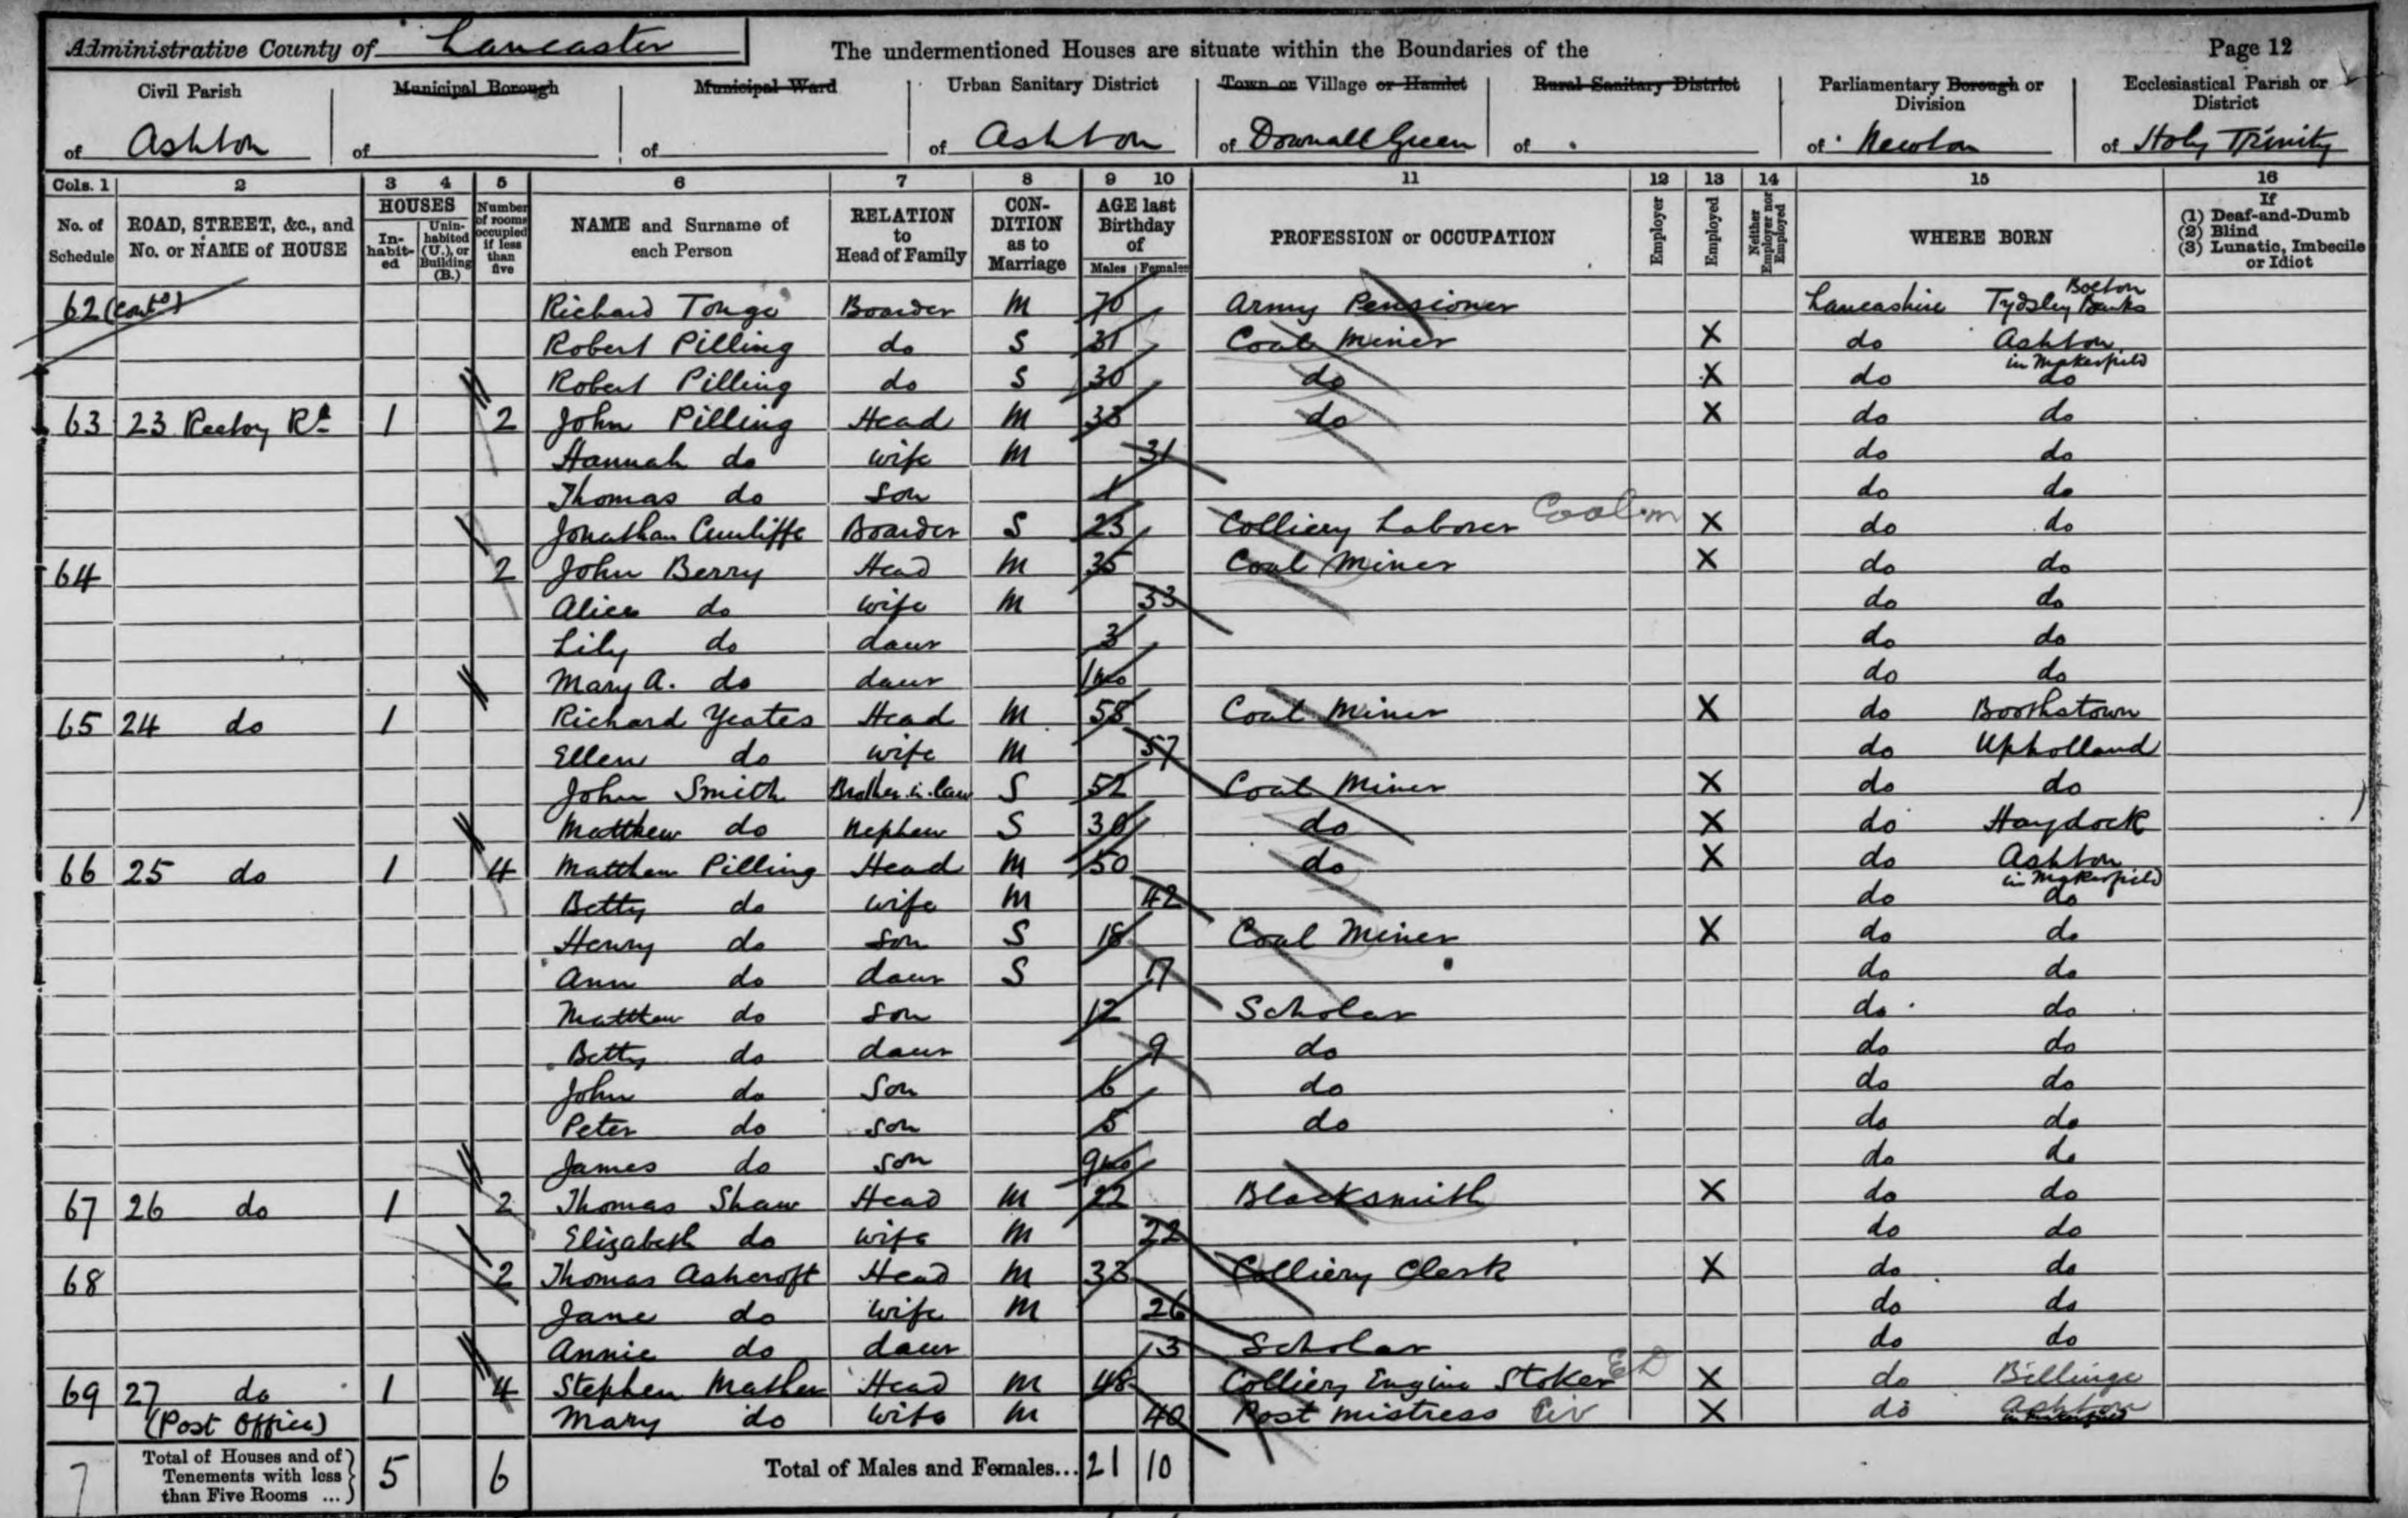 Administrative County of Lancaster The undermentioned Houses are situate within the Boundaries of the Page 12
Civil Parish Municipal Borough Municipal Ward Urban Sanitary District Town or Village or Hamlet Rural Sanitary District Parliamentary Borough or Division Ecclesiastical Parish or District
of Ashton of of of Ashton of Downall Green of of Newton of Holy Trinity
Cols. 1 2 3 4 5 6 7 8 9 10 11 12 13 14 15 16
No. of Schedule ROAD, STREET, &c., and No. or NAME of HOUSE HOUSES Inhabited Uninhabited (U.), or Building (B.) Number of rooms occupied if less than five NAME and Surname of each Person RELATION to Head of Family CONDITION as to Marriage AGE last Birthday of Males Females PROFESSION or OCCUPATION Employer Employed Neither Employer nor Employed WHERE BORN If (1) Deaf-and-Dumb (2) Blind (3) Lunatic, Imbecile or Idiot
62 (Contd) Richard Tonge Boarder M 70 Army Pensioner Lancashire Tydsley Banks Bolton
Robert Pilling do S 31 Coal Miner X do Ashton in Makerfield
Robert Pilling do S 30 do X do do
63 23 Rectory Rd 1 2 John Pilling Head M 33 do X do do
Hannah do wife M 31 do do
Thomas do son 1 do do
Jonathan Cunliffe Boarder S 23 Colliery Laborer Coal m X do do
64 2 John Berry Head M 35 Coal Miner X do do
Alice do wife M 33 do do
Lily do daur 3 do do
Mary A. do daur 1mo do do
65 24 do 1 Richard Yeates Head M 58 Coal Miner X do Boothstown
Ellen do wife M 57 do Upholland
John Smith Brother in law S 52 Coal Miner X do do
Matthew do Nephew S 30 do X do Haydock
66 25 do 1 4 Matthew Pilling Head M 50 do X do Ashton in Makerfield
Betty do wife M 42 do do
Henry do son S 18 Coal Miner X do do
Ann do daur S 17 do do
Matthew do son 12 Scholar do do
Betty do daur 9 do do do
John do son 6 do do do
Peter do son 5 do do do
James do son 9mo do do
67 26 do 1 2 Thomas Shaw Head M 22 Blacksmith X do do
Elizabeth do wife M 22 do do
68 2 Thomas Ashcroft Head M 33 Colliery Clerk X do do
Jane do wife M 26 do do
Annie do daur 13 Scholar do do
69 27 do 1 4 Stephen Mather Head M 48 Colliery Engine Stoker X do Billinge
(Post Office) Mary do wife M 40 Post mistress Civ X do Ashton
7 Total of Houses and of Tenements with less than Five Rooms ... 5 6 Total of Males and Females... 21 10